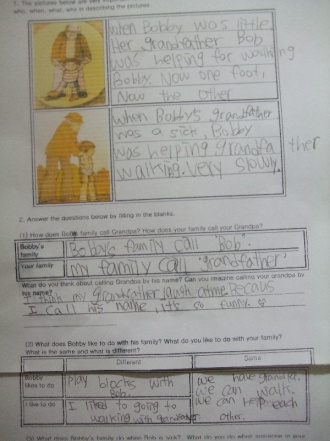 1. The pictures below are very
who, when, what, why in describing the pictures
when Bobby was little,
Her grandfather Bob
was helping for walking
Bobby. Now one foot,
Now the other
when Bobby's grandfather
was a sick, Bobby
was helping grandfather
walking. very slowly.
2. Answer the questions below by filling in the blanks.
(1) How does Bobby's family call Grandpa? How does your family call your Grandpa?
Bobby's family
Bobby's family call Bob.
Your family
my family call 'grandfather'
What do you think about calling Grandpa by his name? Can you imagine calling your grandpa by his name?
I think my grandfather laugh
I call his name, it's so funny.
(2) What does Bobby like to do with his family? What do you like to do with your family?
What is the same and what is different?
Different
Same
Bobby like to do
Play blocks with Bob
we have grandfather.
we can walk
we can help each other.
I like to do
I liked to going to
walking with grandfather
(3) What does Bobby's family do when Bob is sick? What do you do when someone in your